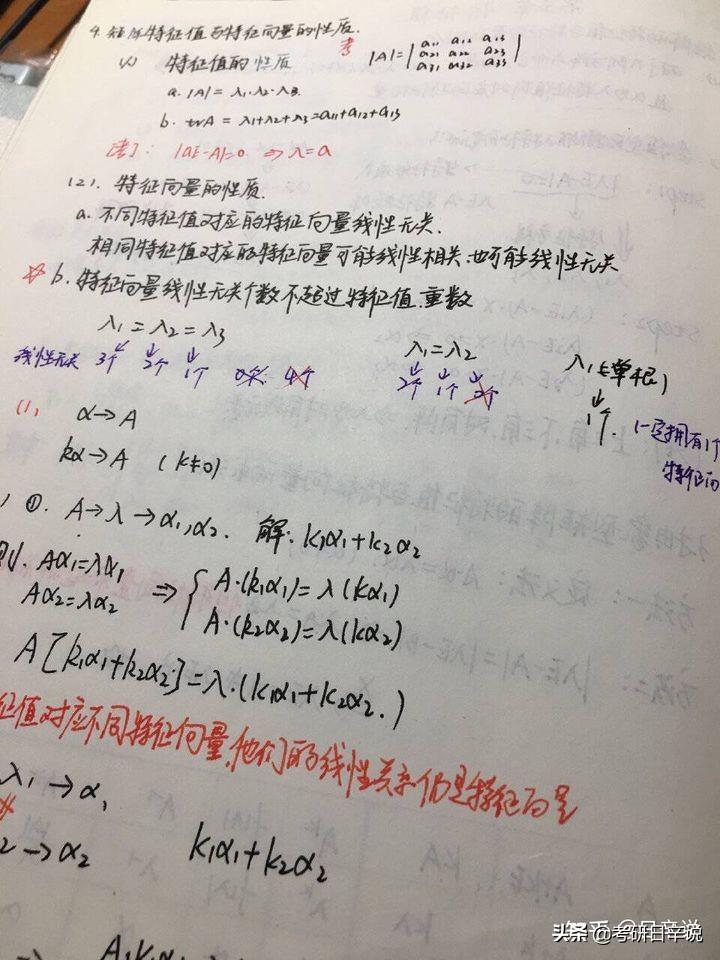 4. 矩阵特征值与特征向量的性质.
(1) 特征值的性质
考 |A| = | a11 a12 a13
a21 a22 a23
a31 a32 a33 |
a. |A| = λ1·λ2·λ3.
b. trA = λ1+λ2+λ3=a11+a12+a13
|aE-A|=0 ⇒ λ=a
(2). 特征向量的性质.
a. 不同特征值对应的特征向量线性无关.
相同特征值对应的特征向量可能线性相关.也可能线性无关
b. 特征向量线性无关个数不超过特征值.重数
λ1 = λ2 = λ3
线性无关 3个 2个 1个 0个. 4个
λ1=λ2
2个 1个
λ1 (单根)
1个. (一定拥有1个
特征向
(1)
α→A
kα→A (k≠0)
①. A→λ→α1,α2. 解: k1α1+k2α2
则. Aα1=λα1
Aα2=λα2
⇒ { A·(k1α1)=λ(kα1)
A·(k2α2)=λ(kα2)
A[k1α1+k2α2]=λ·(k1α1+k2α2.)
征值对应不同特征向量,他们的线性关系仍是特征向量
λ1→α1
2→α2 k1α1+k2α2
头条 @考研日辛说